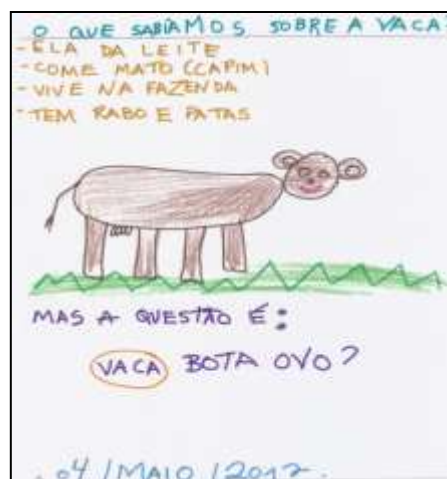 O QUE SABÍAMOS SOBRE A VACA:
- ELA DA LEITE
- COME MATO (CAPIM)
- VIVE NA FAZENDA
- TEM RABO E PATAS
MAS A QUESTÃO É:
VACA BOTA OVO?
04 / MAIO / 2012.